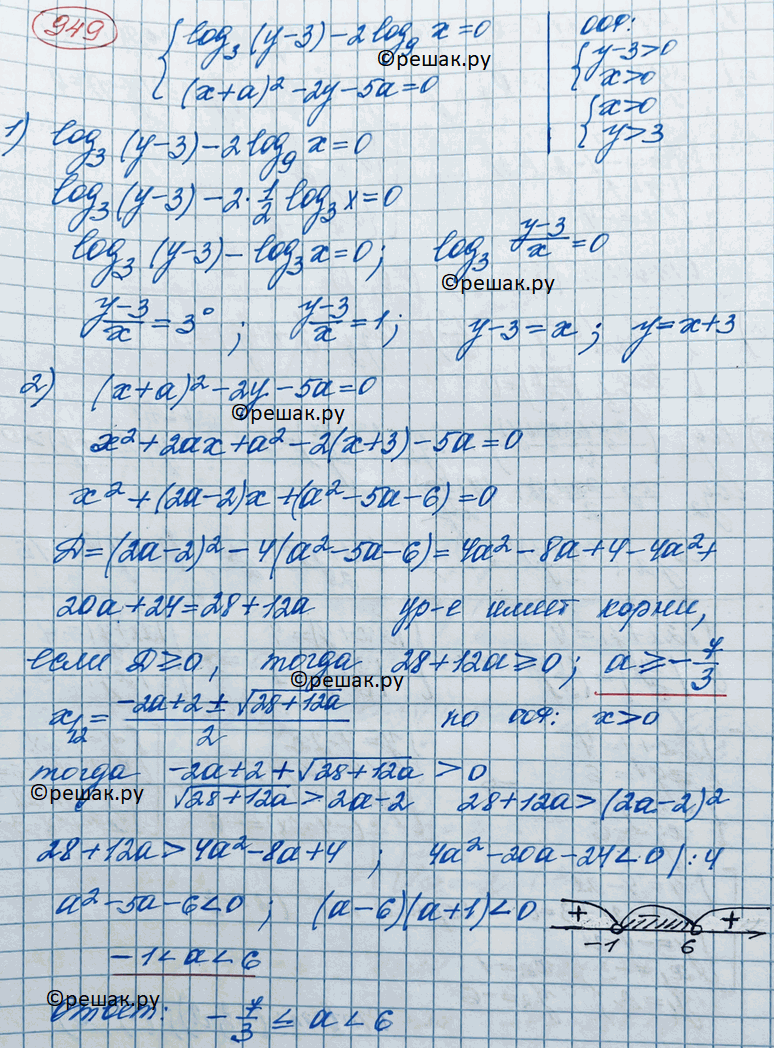 949
{ log₃ (y-3) - 2 log₉ x = 0
©решак.ру
(x+a)² - 2y - 5a = 0
ООФ:
{ y-3>0
x>0
{ x>0
y>3
1) log₃ (y-3) - 2 log₉ x = 0
log₃ (y-3) - 2·1/2 log₃ x = 0
log₃ (y-3) - log₃ x = 0; log₃ (y-3)/x = 0
©решак.ру
(y-3)/x = 3⁰; (y-3)/x = 1; y-3 = x; y = x+3
2) (x+a)² - 2y - 5a = 0
©решак.ру
x² + 2ax + a² - 2(x+3) - 5a = 0
x² + (2a-2)x + (a² - 5a - 6) = 0
D = (2a-2)² - 4(a² - 5a - 6) = 4a² - 8a + 4 - 4a² +
20a + 24 = 28 + 12a ур-е имеет корни,
если D ≥ 0, тогда 28 + 12a ≥ 0; a ≥ -7/3
©решак.ру
x₁,₂ = (-2a + 2 ± √(28+12a))/2 по ООФ: x>0
тогда -2a + 2 + √(28+12a) > 0
©решак.ру
√(28+12a) > 2a-2 28 + 12a > (2a-2)²
28 + 12a > 4a² - 8a + 4; 4a² - 20a - 24 < 0 |:4
a² - 5a - 6 < 0; (a-6)(a+1) < 0
+ - +
-1 6
-1 < a < 6
©решак.ру
Ответ: -7/3 ≤ a < 6